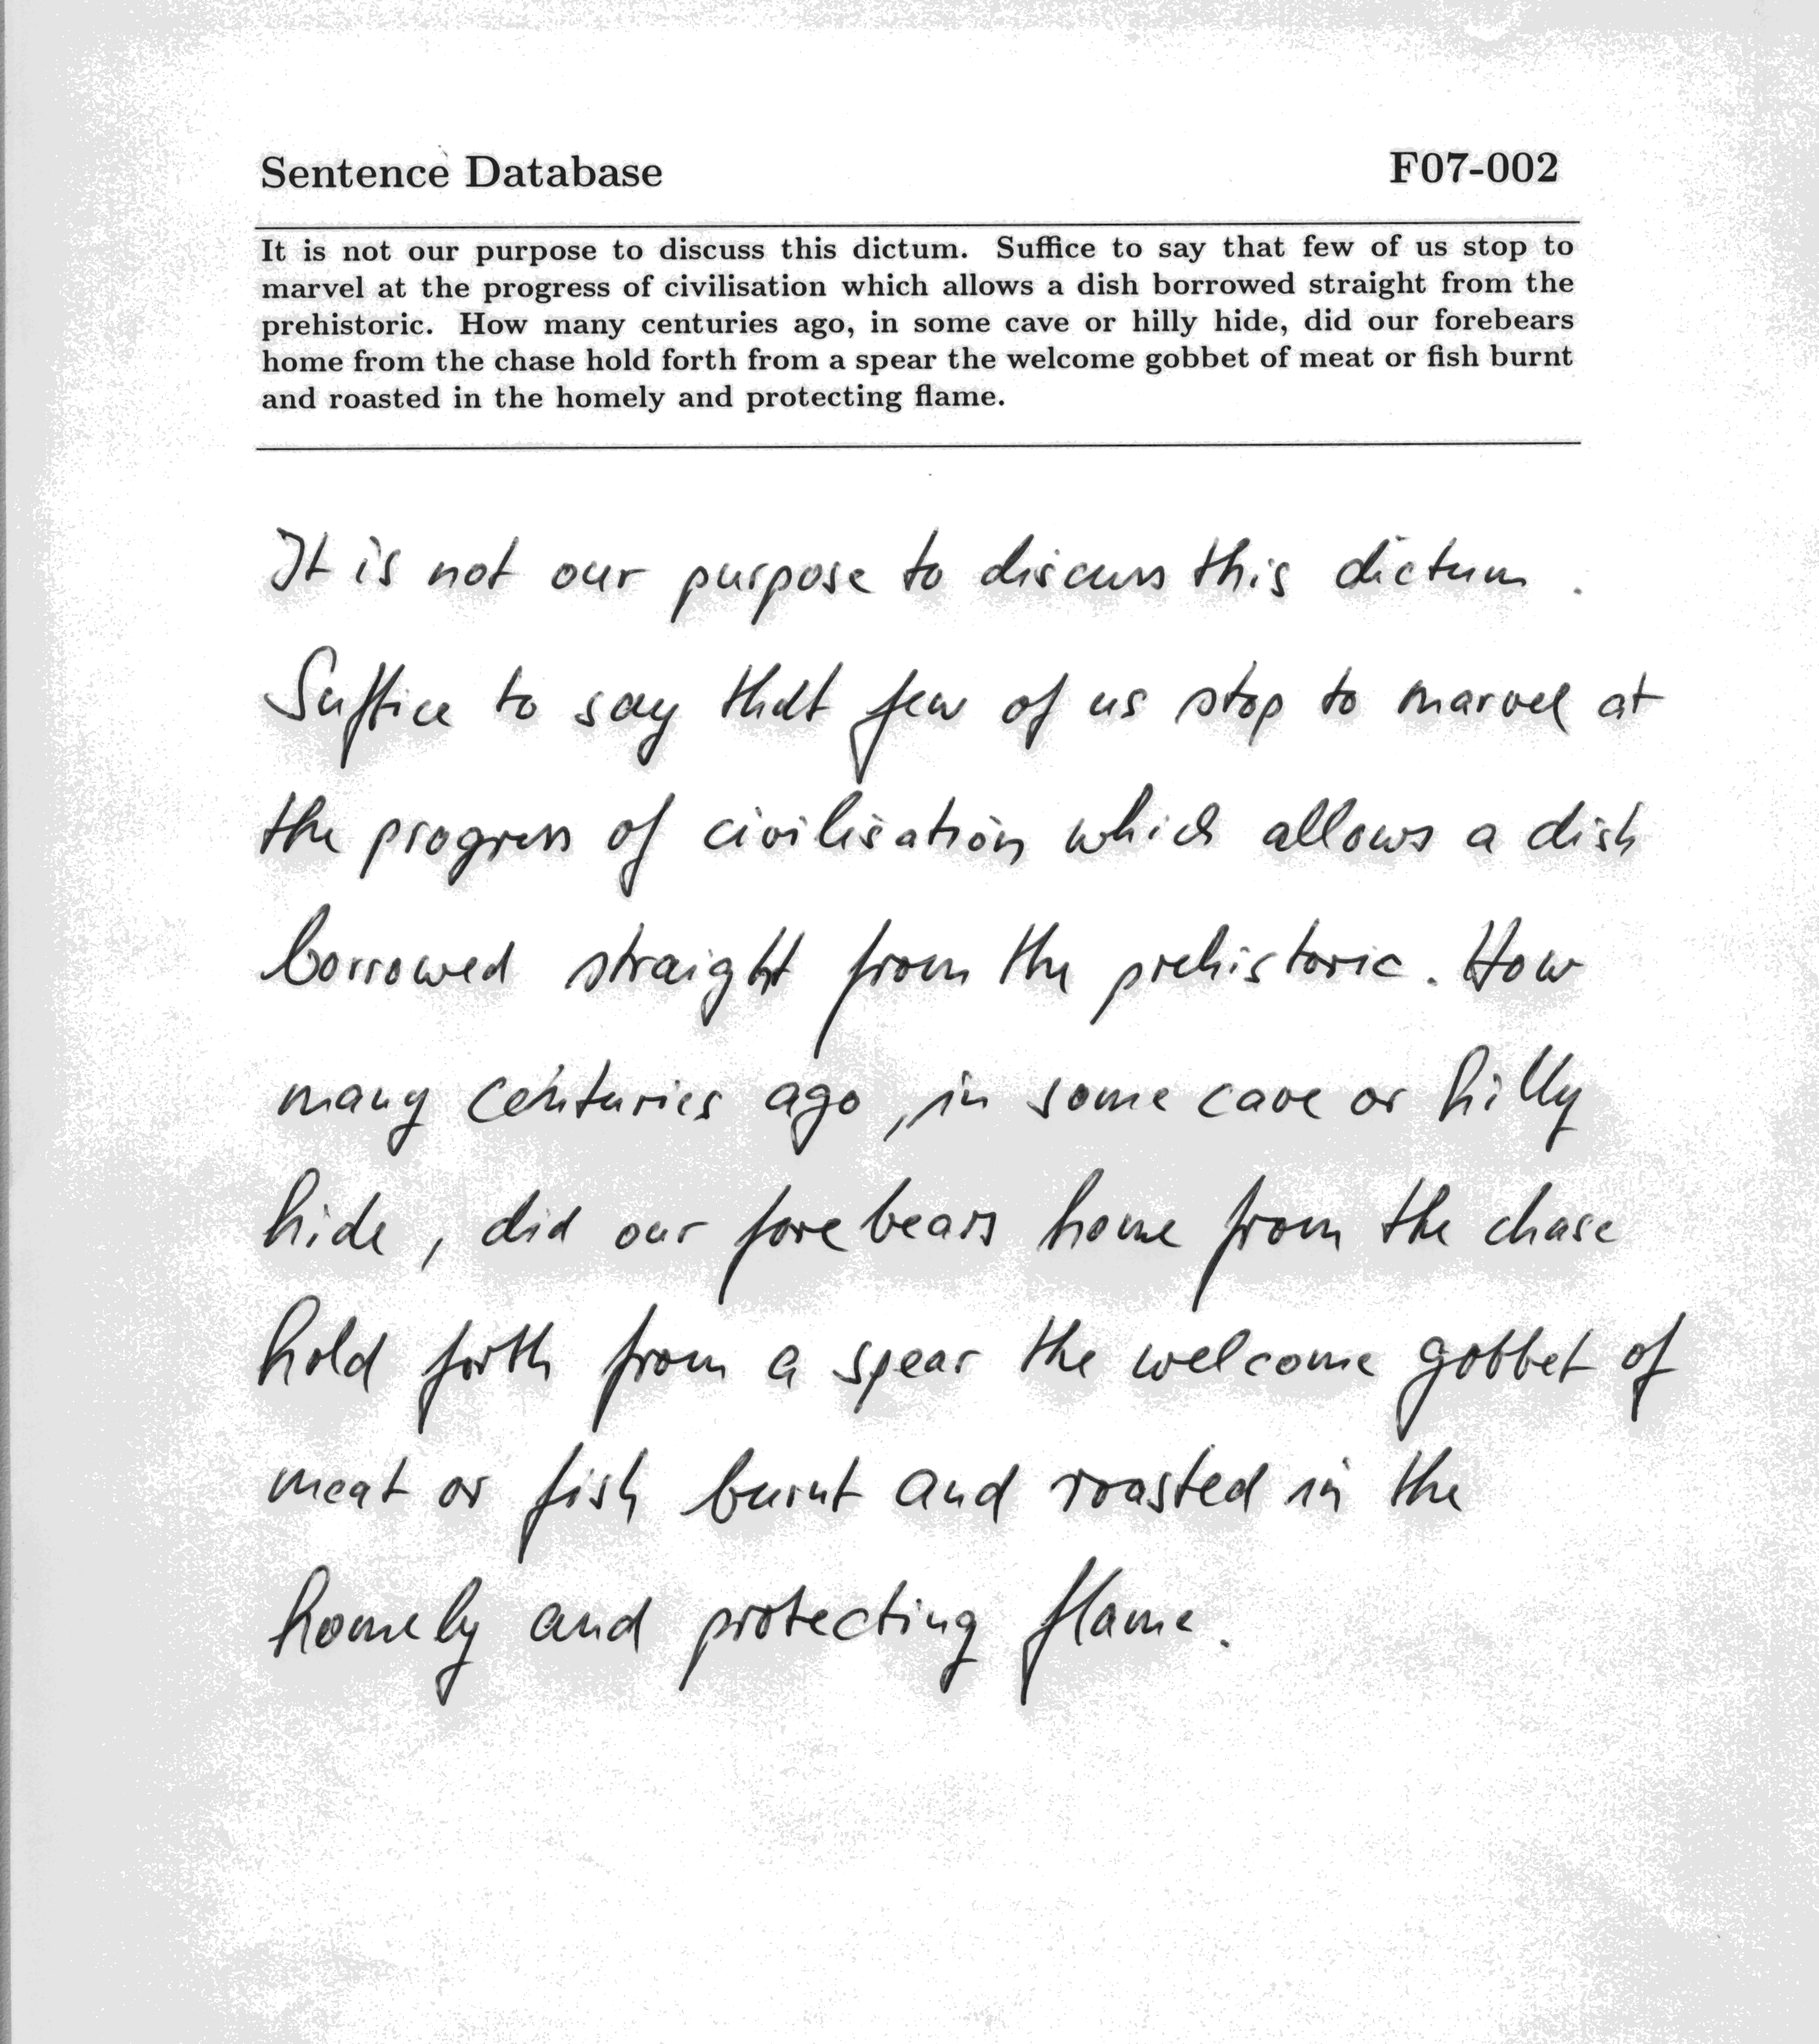 Sentence Database F07-002
It is not our purpose to discuss this dictum. Suffice to say that few of us stop to
marvel at the progress of civilisation which allows a dish borrowed straight from the
prehistoric. How many centuries ago, in some cave or hilly hide, did our forebears
home from the chase hold forth from a spear the welcome gobbet of meat or fish burnt
and roasted in the homely and protecting flame.
It is not our purpose to discuss this dictum .
Suffice to say that few of us stop to marvel at
the progress of civilisation which allows a dish
borrowed straight from the prehistoric. How
many centuries ago , in some cave or hilly
hide , did our forebears home from the chase
hold forth from a spear the welcome gobbet of
meat or fish burnt and roasted in the
homely and protecting flame.